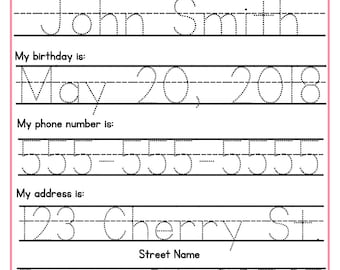 John Smith
My birthday is:
May 20, 2018
My phone number is:
555-555-5555
My address is:
123 Cherry St.
Street Name